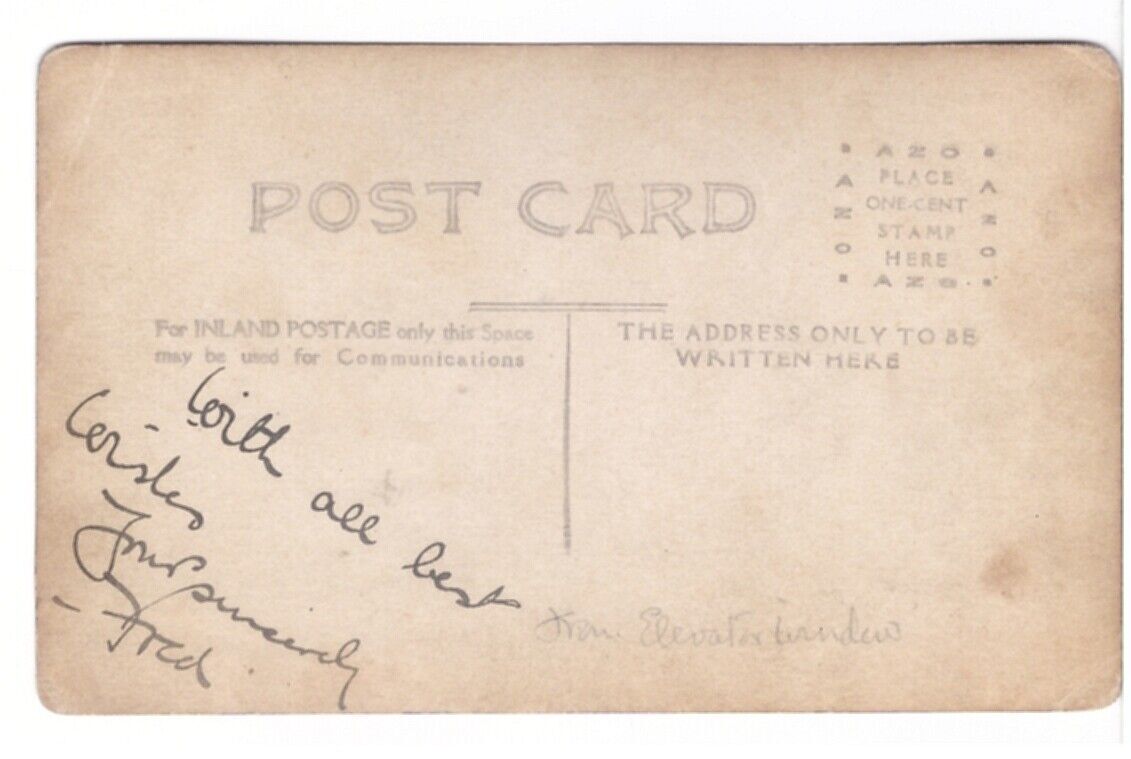 POST CARD
AZO
AZO
AZO
PLACE
ONE-CENT
STAMP
HERE
AZO
For INLAND POSTAGE only this Space
may be used for Communications
THE ADDRESS ONLY TO BE
WRITTEN HERE
With all best
Wishes
Yours sincerely
- Fred.
From Elevator Window